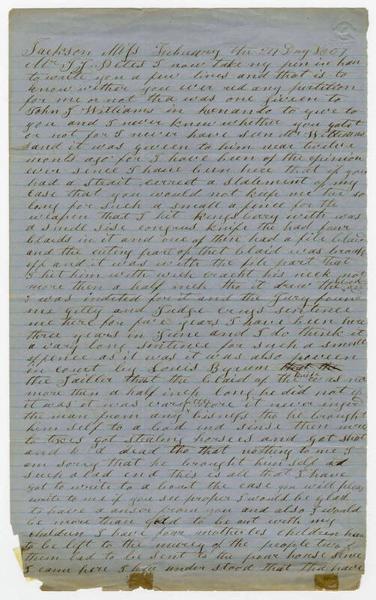 Jackson Miss February the 24 Day 1861
Mr J J Pettus I now take my pen in han
to write you a few lines and that is to
know wether you ever red any partition
for me or not tha was one given to
John J Williams in Hernando to give to
you and I never knew wheather you got it
or not for I never have seen Mr Williams
and it was given to him near twelve
months ago for I have been of the opinion
ever since I have been here that if you
had a strait corect a statement of my
case that you would not keep me her so
long for such a small a fence for the
weapen that I hit Kingsberry with was
a small sise congrus knife tha had four
blaids in it and one of them had a file blaid
and the cuting part of that blaid was broak
off and it was with the file part that
I hit him with wich cracht his neck not
more then a half inch tho it drew the blood
I was indited for it and the Jury found
me gilty and Judge sentence
me here for five years I have been here
three years in June and I do think it
a vary long sentence for such a small
offence as it was it was also proven
in court by Louis Byrum
the Jailer that the blaid of the knife was no
more then a half inch long he did not
it was it was it never
the man from any bisness tho he brought
him self to a bad end sinse then
to texes got stealing horses and got shot
and kild dead tho that nothing to me I
am sorry that he brought him self to
such a bad end this is all that I have
got to write to a bout the case you will pleas
write to me if you see proper I would be glad
to have a anser from you and also I would
be more than glad to be out with my
children I have four motherles children
to be left to the mercy of the people two of
them had to be sent to the poor house since
I came here I have under stood that tha have